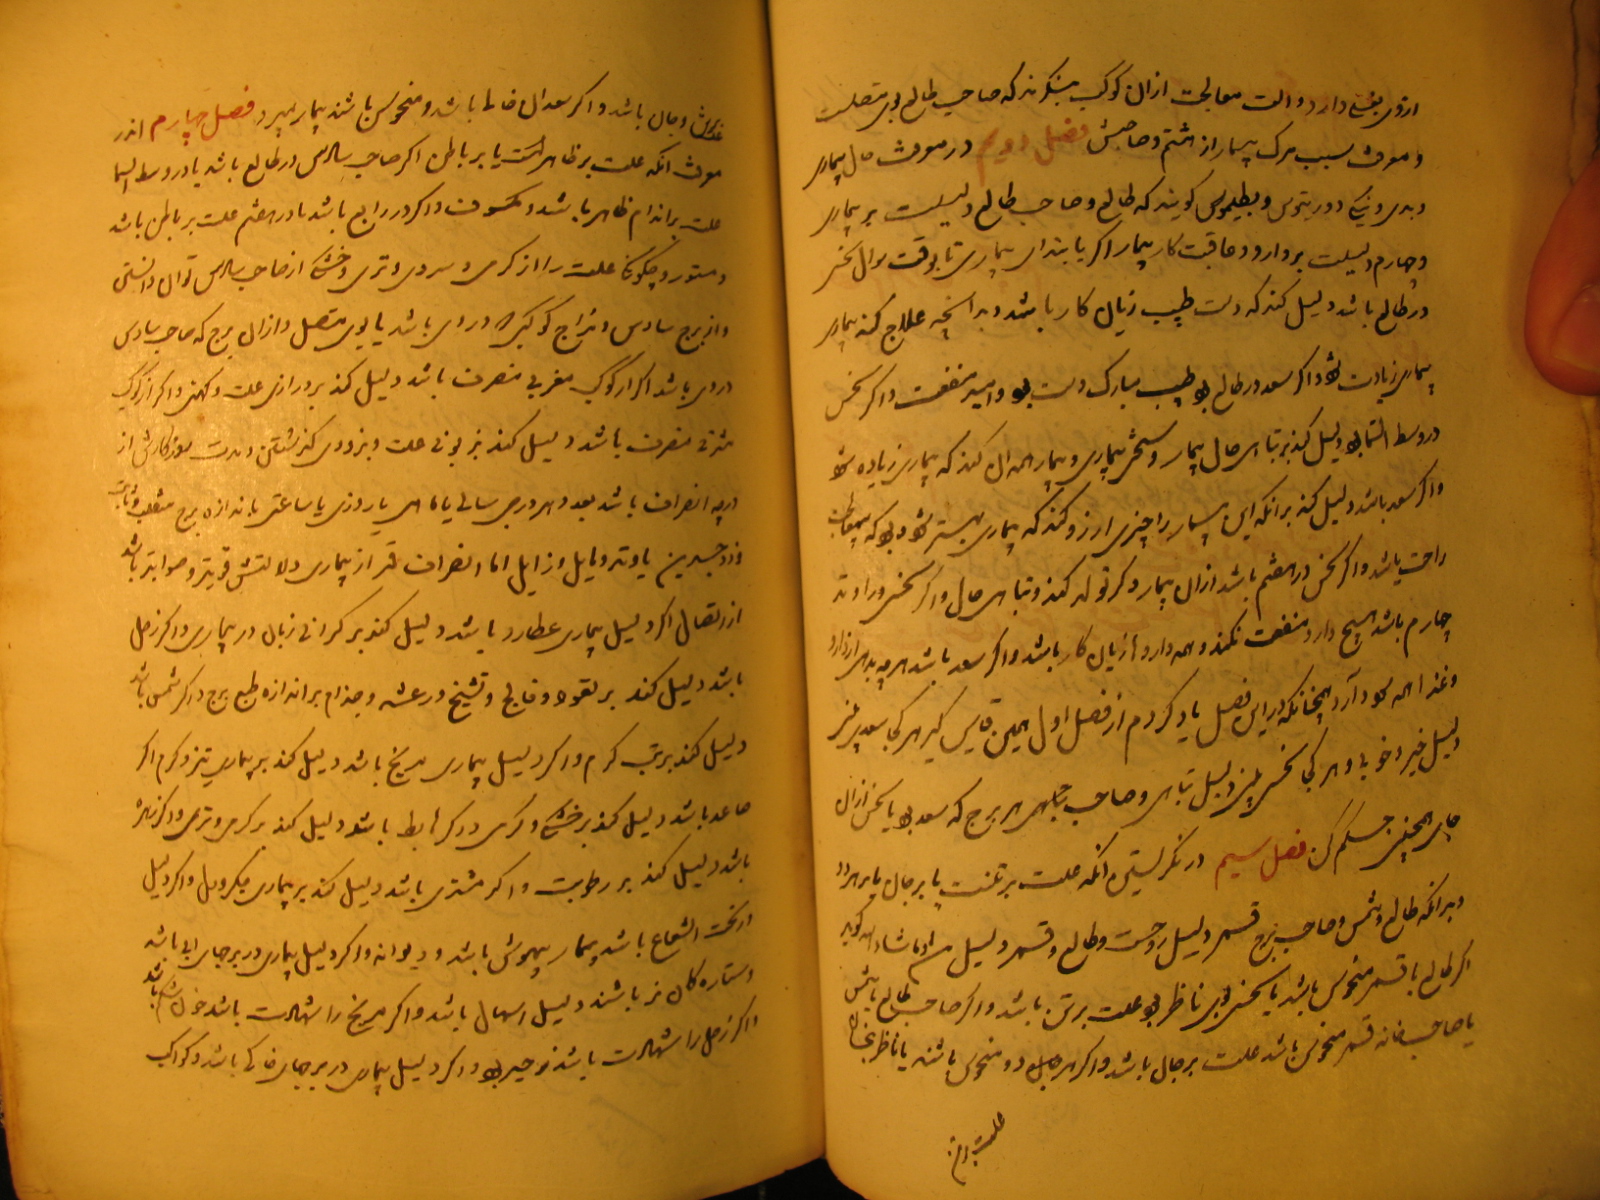 ازوی بفتح دارد والت معالجت ازان کوکب بنکرند که صاحب طالع بوی متصلست
و معرفت سبب مرک بیمار از هشتم و صاحبش فصل دویم در معرفت حال بیماری
و بدی و نیکی دوریتوس و بطلیموس کویند که طالع و صاحب طالع دلیلست بر بیماری
و چهارم دلیلست بر دارو و عاقبت کار بیمار اکر بابتدای بیماری تا بوقت سوال نحس
در طالع باشد دلیل کند که دست طبیب زیان کار باشد و بدانچه علاج کند بیماری
بیماری زیادت شود و اکر سعد در طالع بود طبیب مبارک دست بود و امید منفعت و اکر نحس
در وسط السما بود دلیل کند بر تباهی حال بیمار و سختی بیماری و بیمار همه آن کند که بیماری زیاده شود
و اکر سعد باشد دلیل کند بر آنکه این بیمار را چیزی آرزو کند که بیماری بهتر شود
راحت باشد و اکر نحس در هفتم باشد ازان بیمار دکر تولد کند و تباهی حال و اکر نحس در اوتد
چهارم باشد هیچ دارو منفعت نکند و همه داروها زیان کار باشد و اکر سعد باشد هر چه بدهی از دارو
و غذا همه سود دارد همچنانکه در این فصل یاد کردم از فصل اول همین قیاس کیر هر کجا سعد بینی
دلیل خیر و خوبی و هر کجا نحس بینی دلیل تباهی و صاحب هر برج که سعد بود یا نحس ازان
جای همچنین حکم کن فصل سیم در نکرستین آنکه علت بر تنست یا بر جان یا بر هر دو
و بدانکه طالع و شمس و صاحب برج قمر دلیل روحست و طالع و قمر دلیل ماشاءالله کوید
اکر طالع با قمر منحوس باشد یا نحس بوی ناظر بود علت بر تن باشد و اکر صاحب طالع یا شمس
یا صاحب خانه قمر منحوس باشد علت بر جان باشد و اکر هر دو منحوس باشند یا ناظر بنحسان
علت بر تن
و جان باشد و اکر سعدان باشد و منحوس باشند بیمار بمیرد فصل چهارم اندر
معرفت آنکه علت بر ظاهر است یا بر باطن اکر صاحب سادس در طالع باشد یا در وسط السما
علت بر اندام ظاهر باشد و مکشوف و اکر در رابع باشد یا در هفتم علت بر باطن باشد
و مستور و چکونکی علت را از کرمی و سردی و تری و خشکی از صاحب سادس توان دانستن
و از برج سادس و مزاج کوکبی که در وی باشد یا بوی متصل و ازان برج که صاحب سادس
در وی باشد اکر از کوکب مغربی منصرف باشد دلیل کند بر درازی علت و کهنی و اکر از کوکب
مشرقی منصرف باشد دلیل کند بر نوی علت و بزودی کذشتن و مدت روزکارش از
درجه انصراف باشد بعدد هر درجی سالی یا ماهی یا روزی یا ساعتی باندازه برج منقلب و ثابت
و ذو جسدین یا وتد و مایل و زایل اما انصراف قمر از بیماری دلالتش قویتر و صوابتر باشد
از اتصال اکر دلیل بیماری عطارد باشد دلیل کند بر کرانی زبان در بیماری و اکر زحل
باشد دلیل کند بر لقوه و فالج و تشنج و رعشه و جذام بر اندازه طبع برج و اکر شمس باشد
دلیل کند بر تب کرم و اکر دلیل بیماری مریخ باشد دلیل کند بر بیماری تیز و کرم اکر
صاعد باشد دلیل کند بر خشکی و کرمی و اکر هابط باشد دلیل کند بر کرمی و تری و اکر زهره
باشد دلیل کند بر رطوبت و اکر مشتری باشد دلیل کند بر بیماری و اکر دلیل
در تحت الشعاع باشد بیمار بیهوش باشد و دیوانه و اکر دلیل بیماری در برجهای آبی باشد
و ستاره کان نر باشند دلیل اسهال باشد و اکر مریخ را شهادت باشد خون شکم باشد
و اکر زحل را شهادت باشد زحیر بود و اکر دلیل بیماری در برجهای خاکی باشد و کواکب